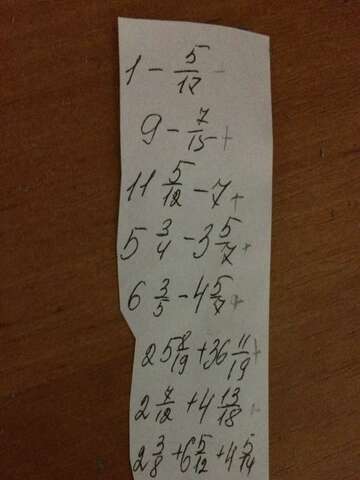 1 - 5/12
9 - 7/15 +
11 5/12 - 7 +
5 3/4 - 3 5/7 +
6 3/5 - 4 5/7 +
25 8/19 + 36 11/19 +
2 7/12 + 4 13/18 +
2 3/8 + 6 5/12 + 4 5/14